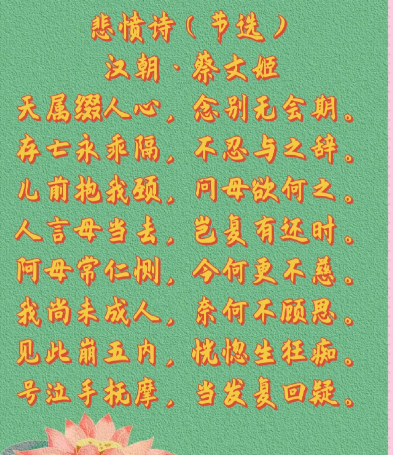 悲愤诗（节选）
汉朝·蔡文姬
天属缀人心，念别无会期。
存亡永乖隔，不忍与之辞。
儿前抱我颈，问母欲何之。
人言母当去，岂复有还时。
阿母常仁恻，今何更不慈。
我尚未成人，奈何不顾思。
见此崩五内，恍惚生狂痴。
号泣手抚摩，当发复回疑。